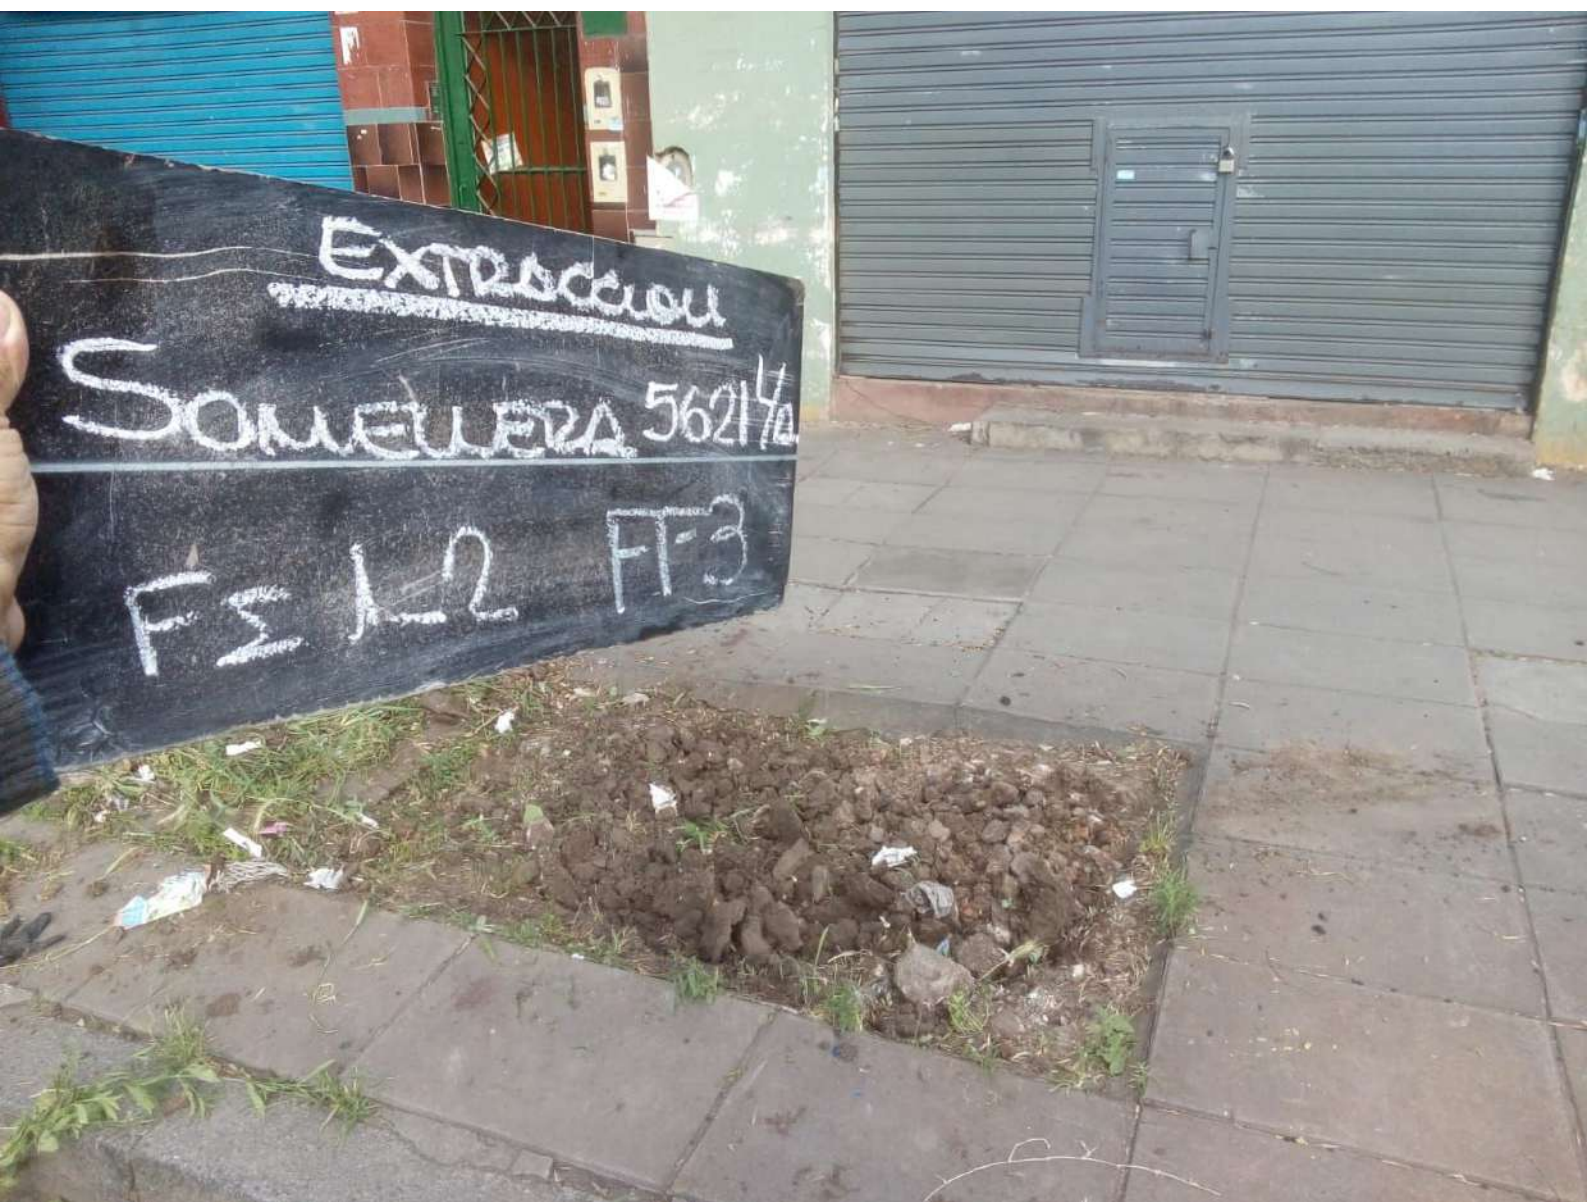 EXTRACCION
SOMELLERA 5621 1/2
FΣ 1-2 FT-3